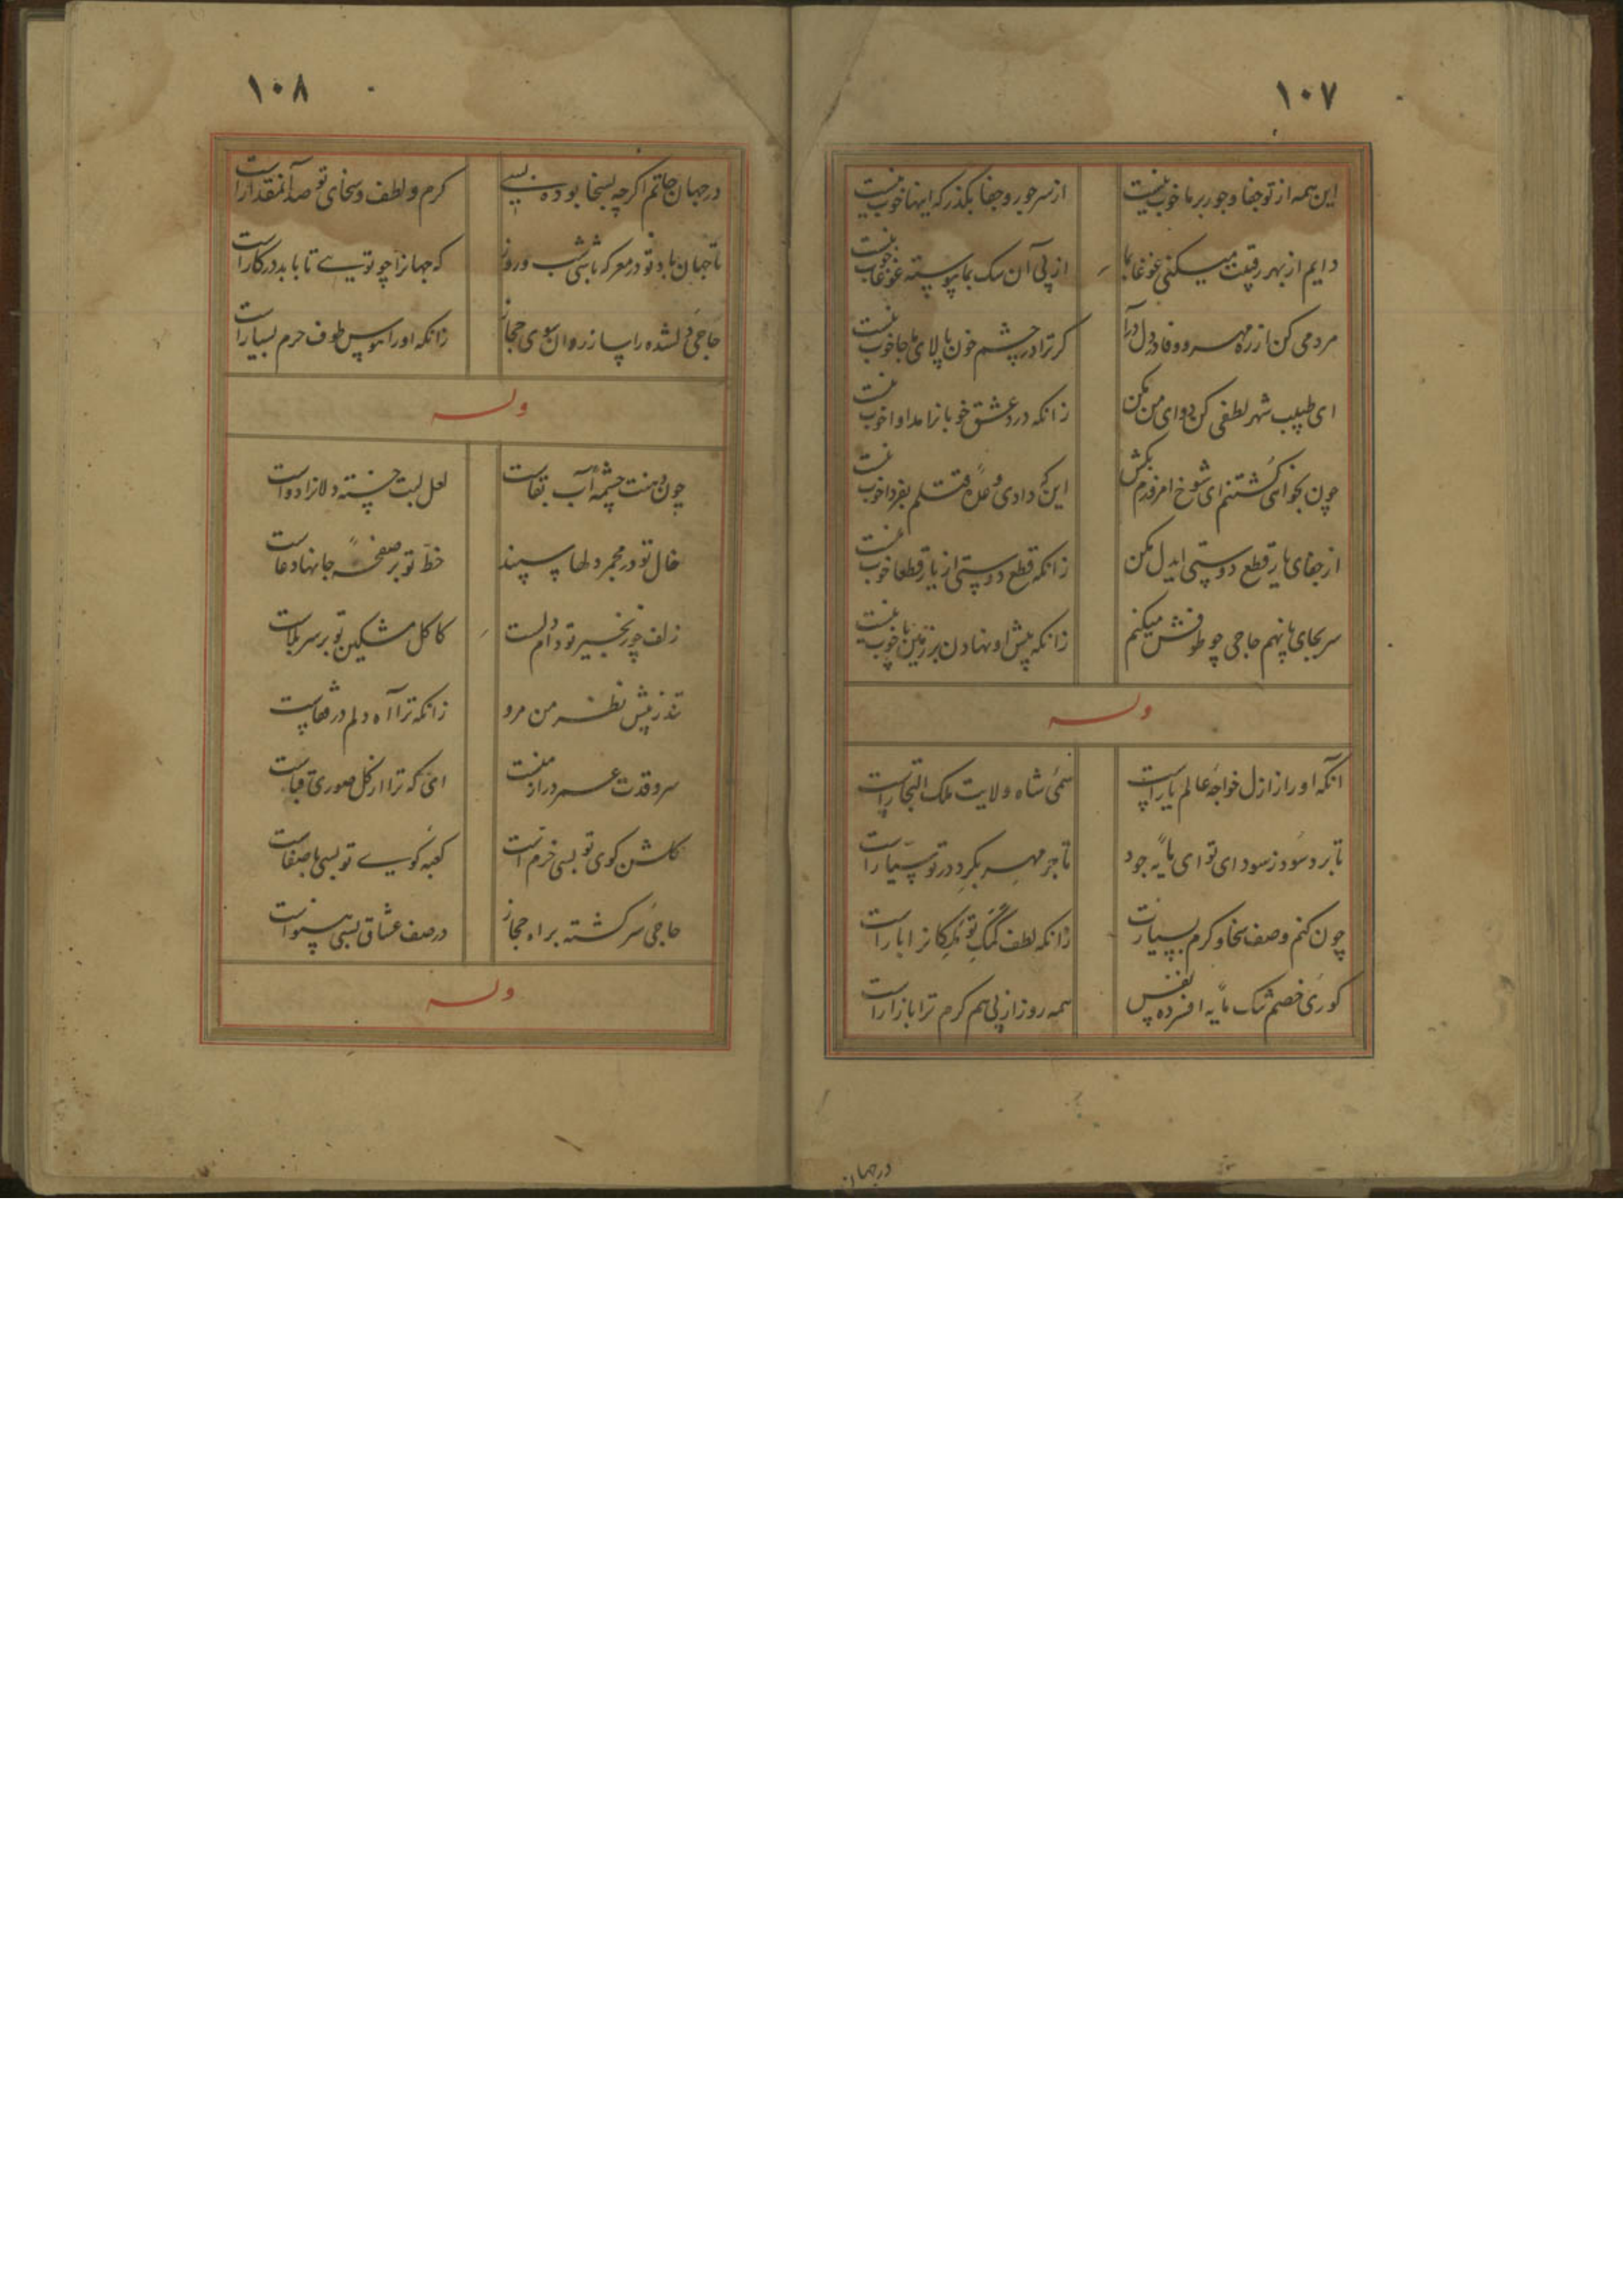 ۱۰۷
این همه از تو جفا و جور بر ما خوب نیست
از سر جور و جفا بگذر که اینها خوب نیست
دایم از بهر رقیبت میکنی غوغا بما
از پی آن سک بما پیوسته غوغا خوب نیست
مردمی کن از ره مهر و وفا در دل درآ
کر ترا در چشم خون پالای ما جا خوب نیست
ای طبیب شهر لطفی کن دوای من مکن
زانکه درد عشق خوبانرا مداوا خوب نیست
چون بخواهی کشتنم ای شوخ امروزم بکش
این که دادی وعدهٔ قتلم بفردا خوب نیست
از جفای یار قطع دوستی ایدل مکن
زانکه قطع دوستی از یار قطعا خوب نیست
سر بجای پا نهم حاجی چو طوفش میکنم
زانکه پیش او نهادن بر زمین پا خوب نیست
وله
آنکه او را ز ازل خواجهٔ عالم یارست
سمی شاه ولایت ملک التجارست
تا برد سود ز سودای تو ای مایهٔ جود
تاجر مهر بکرد در تو سیارست
چون کنم وصف سخا و کرم بسیارت
زانکه لطف کمت
کوری خصم تنک مایه افسرده نفس
همه روز از پی هم کرم ترا بازارست
در جهان
۱۰۸
در جهان حاتم اکرچه بسخا بوده بسی
کرم و لطف و سخای تو صد آنمقدارست
تا جهان باد تو در معرکه باشی شب و روز
که جهانرا چو تویی تا بابد در کارست
حاجی دلشده را ساز روان سوی حجاز
زانکه او را هوس طوف حرم بسیارست
وله
چون دهنت چشمهٔ آب بقاست
لعل لبت خسته دلانرا دواست
خال تو در مجمر دلها سپند
خط تو بر صفحهٔ جانها دعاست
زلف چو زنجیر تو دام دلست
کاکل مشکین تو بر سر بلاست
تند ز پیش نظر من مرو
زانکه ترا آه دلم در قفاست
سرو قدت عمر دراز منست
ای که ترا از کل سوری قباست
کلشن کوی تو بسی خرم است
کعبه کوی تو بسی با صفاست
حاجی سر کشته براه حجاز
در صف عشاق بسی بینواست
وله